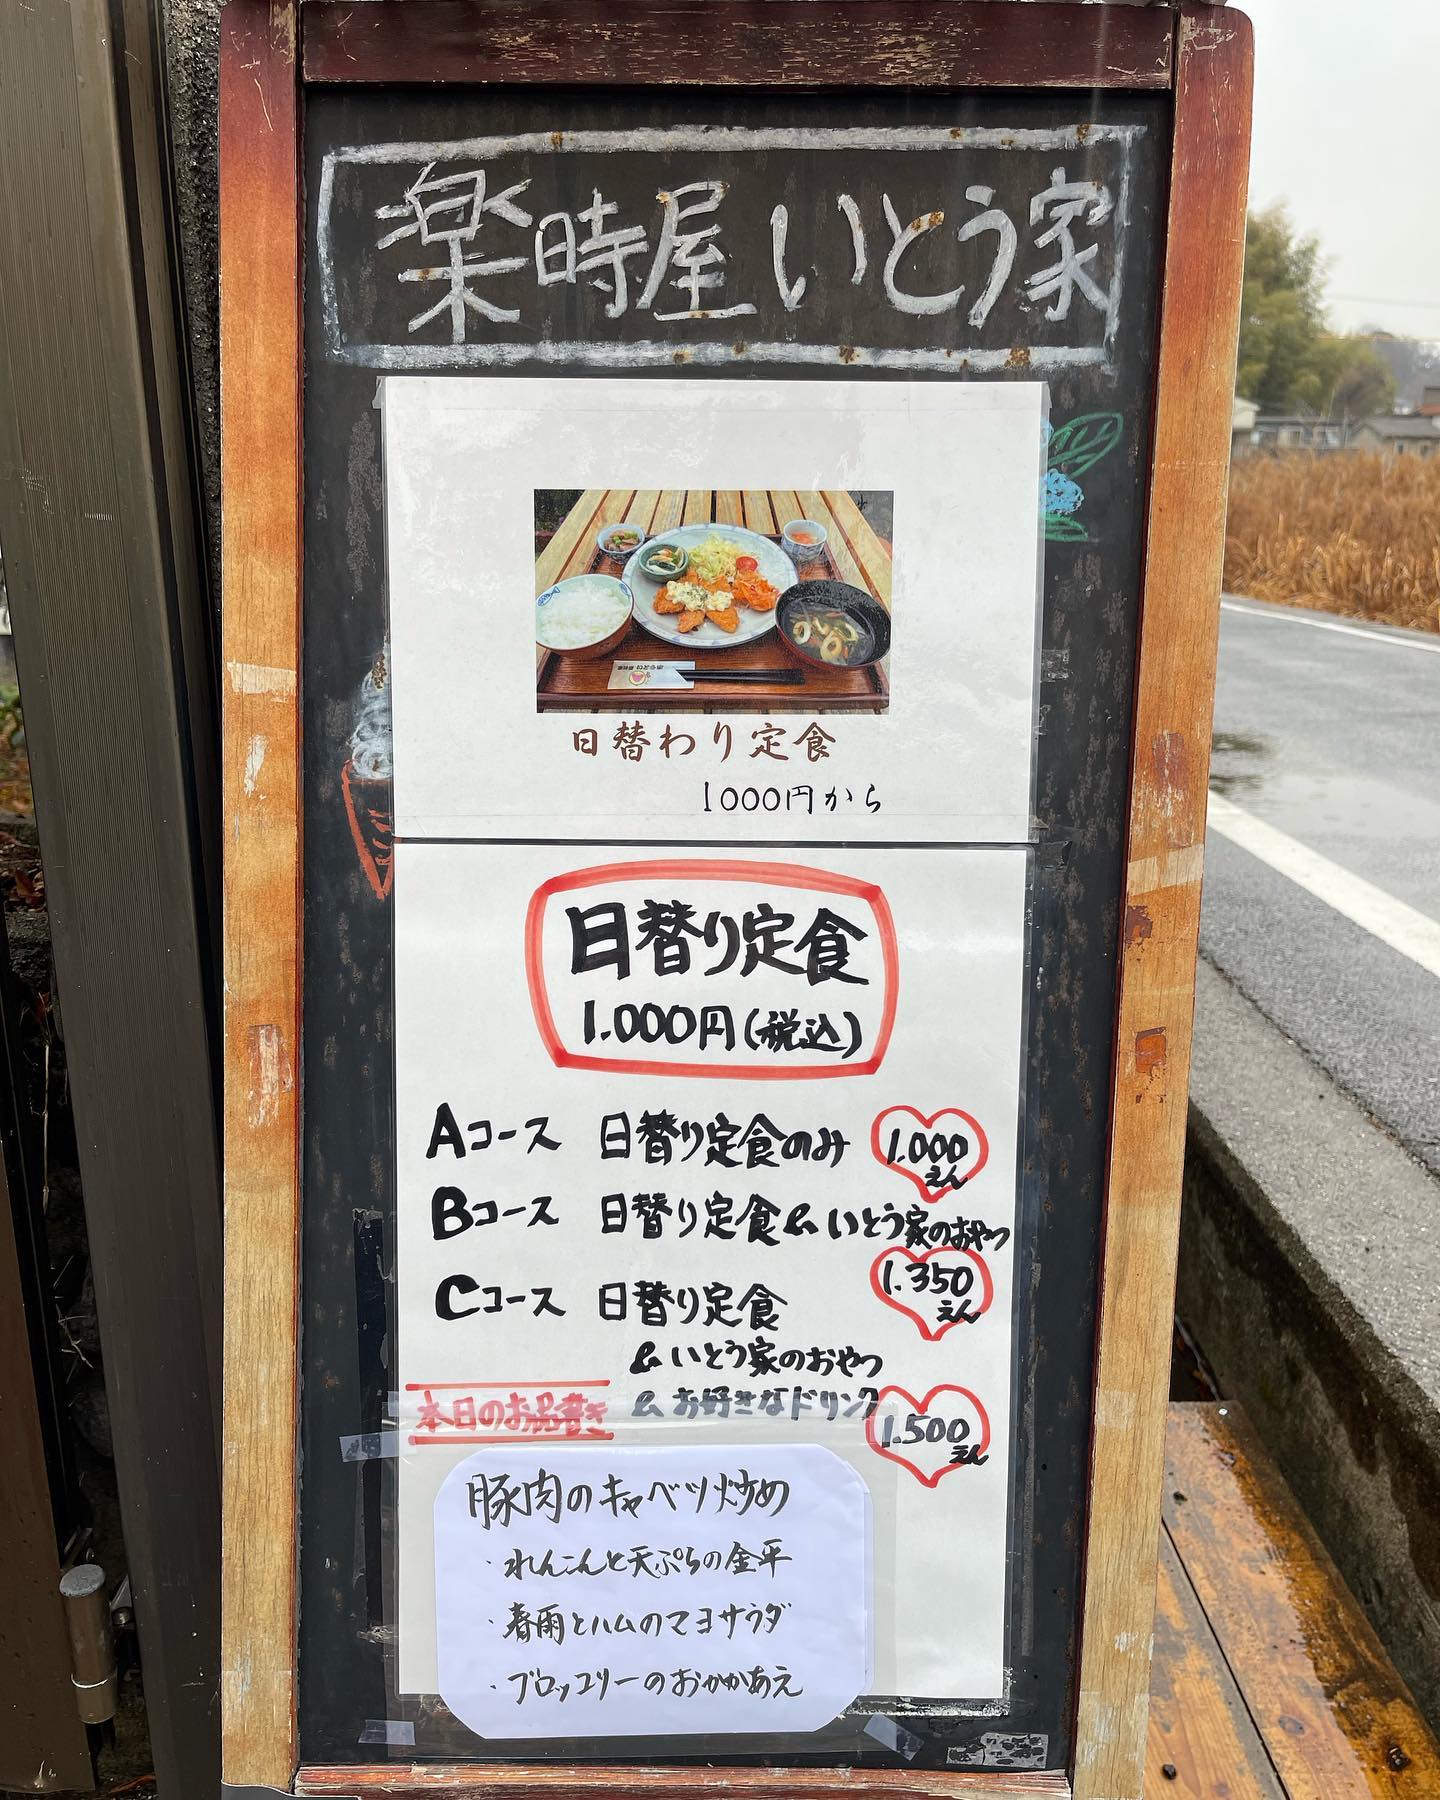 楽時屋 いとう家
日替わり定食
1000円から
日替り定食
1.000円(税込)
Aコース 日替り定食のみ 1.000えん
Bコース 日替り定食&いとう家のおやつ
1.350えん
Cコース 日替り定食
&いとう家のおやつ
&お好きなドリンク
1.500えん
本日のお品書き
豚肉のキャベツ炒め
・れんこんと天ぷらの金平
・春雨とハムのマヨサラダ
・ブロッコリーのおかかあえ